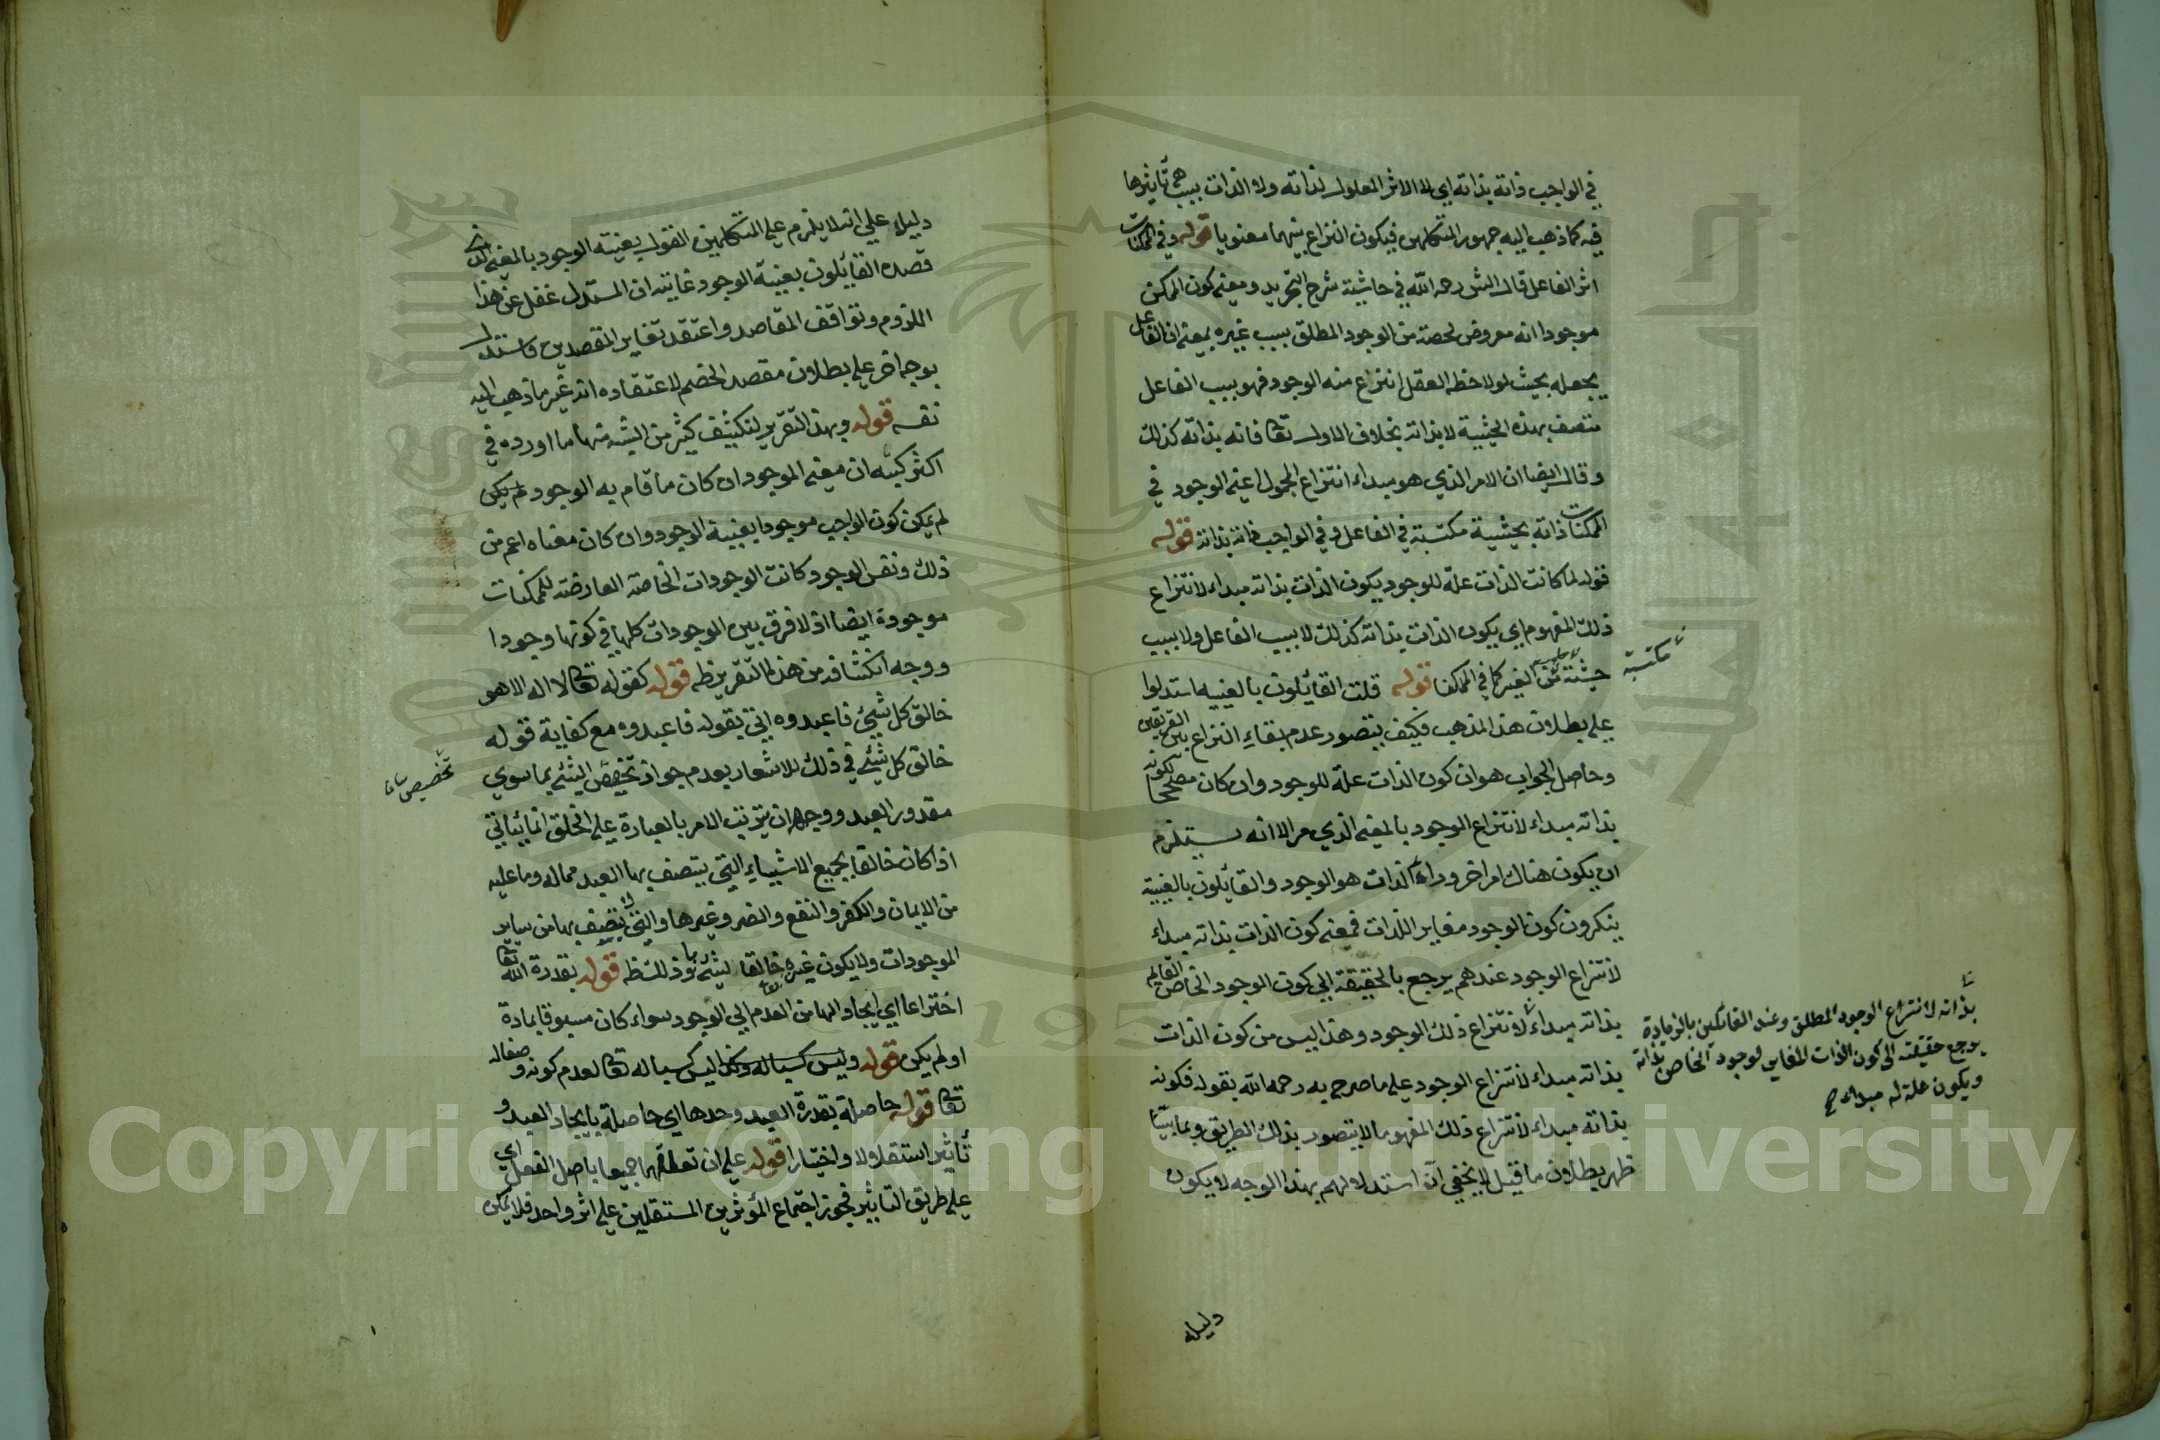 في الواجب ذاته بذاته اي لا الاثر المعلول لذاته ولا الذات بسبب تأثيرها
فيه كما ذهب اليه جمهور المتكلمين فيكون النزاع بينهما معنويا قوله وفي الممكنات
اثر الفاعل قال الش رحمه الله في حاشية شرح التجريد ومعنى كون الممكن
موجودا انه معروض لحصة من الوجود المطلق بسبب غيره بمعنى ان الفاعل
يجعله بحيث لو لاحظه العقل انتزاع منه الوجود فهو بسبب الفاعل
متصف بهذه الحيثية لا بذاته بخلاف الاول تعا فانه بذاته كذلك
وقال ايضا ان الامر الذي هو مبداء انتزاع المحمول اعني الوجود في
الممكنات ذاته بحيثية مكتسبة في الفاعل وفي الواجب ذاته بذاته قوله
فقوله لما كانت الذات علة للوجود يكون الذات بذاته مبداء لانتزاع
ذلك المفهوم اي يكون الذات بذاته كذلك لا بسبب الفاعل ولا بسبب
حيثية من الغير كما في الممكنا قوله قلت القائلون بالعينيه استدلوا
مكتسبة
على بطلان هذا المذهب فكيف يتصور عدم بقاء النزاع بين الفريقين
وحاصل الجواب هو ان كون الذات علة للوجود وان كان مصححا لكونه
بذاته مبداء لانتزاع الوجود بالمعنى الذي مر الا انه يستلزم
ان يكون هناك امر اخر وراء الذات هو الوجود والقائلون بالعينية
ينكرون كون الوجود مغاير اللذات فمعنى كون الذات بذاته مبداء
لانتزاع الوجود عندهم يرجع بالحقيقة الى كون الوجود الخاص القائم
بذاته مبداء لانتزاع ذلك الوجود وهذا ليس من كون الذات
بذاته لانتزاع الوجود المطلق وعند القائلين بالزيادة
يرجع حقيقته الى كون الذات المغاير لوجوده الخاص بذاته
ويكون علة له مبداء
بذاته مبداء لانتزاع الوجود على ما صرح به رحمه الله بقوله فكونه
بذاته مبداء لانتزاع ذلك المفهوم ما لا يتصور بذلك الطريق وبما بيننا
ظهر بطلان ما قيل لا يخفى ان استدلالهم بهذا الوجه لا يكون
دليله
دليلا على انه لا يلزم على المتكلمين القول بعينية الوجود بالمعنى الذي
قصده القائلون بعينية الوجود غايته ان المستدل غفل عن هذا
اللزوم وتوافق المقاصد واعتقد تغاير المقصدين واستدل
بوجه اخر على بطلان مقصد الخصم لاعتقاده انه غير ما ذهب اليه
نفسه قوله وبهذا التقرير لنكشف كثير من الشبه منها ما اورده في
اكثر كتبه ان معنى الموجود ان كان ما قام به الوجود لم يكن
لم يمكن كون الواجب موجودا بعينية الوجود وان كان معناه اعم من
ذلك ونفس الوجود كانت الوجودات الخاصة العارضة للممكنات
موجودة ايضا اذ لا فرق بين الوجودات كلها في كونها وجودا
ووجه انكشافه من هذا التقرير ظه قوله كقوله تعا لا اله الا هو
خالق كل شيئ فاعبدوه اتى بقوله فاعبدوه مع كفاية قوله
خالق كل شيئ في ذلك للاشعار بعدم جواز تخصيص الشئ بما سوى
تخصيص
مقدور العبد ووجهه ان ترتيب الامر بالعبادة على الخلق انما يتأتى
اذا كان خالقا بجميع الاشياء التي يتصف بها العبد مما له وما عليه
من الايمان والكفر والنفع والضر وغيرها والتي يتصف بها من ساير
الموجودات ولا يكون غيره خالقا لشئ قوله بقدرة الله تعا
اختراعا اي ايجادا لها من العدم الى الوجود سواء كان مسبوقا بمادة
او لم يكن قوله وليس كسبا له وكذا ليس كسبا له تعا لعدم كونه وصفا له
تعا قوله حاصلة بقدرة العبد وحدها اي حاصلة بايجاد العبد و
تأثير استقلالا واختيارا قوله على ان تعلقهما جميعا باصل الفعل اي
على طريق التاثير فجوز اجتماع المؤثرين المستقلين على اثر واحد فلا يمكن
Copyright © King Saud University
1957